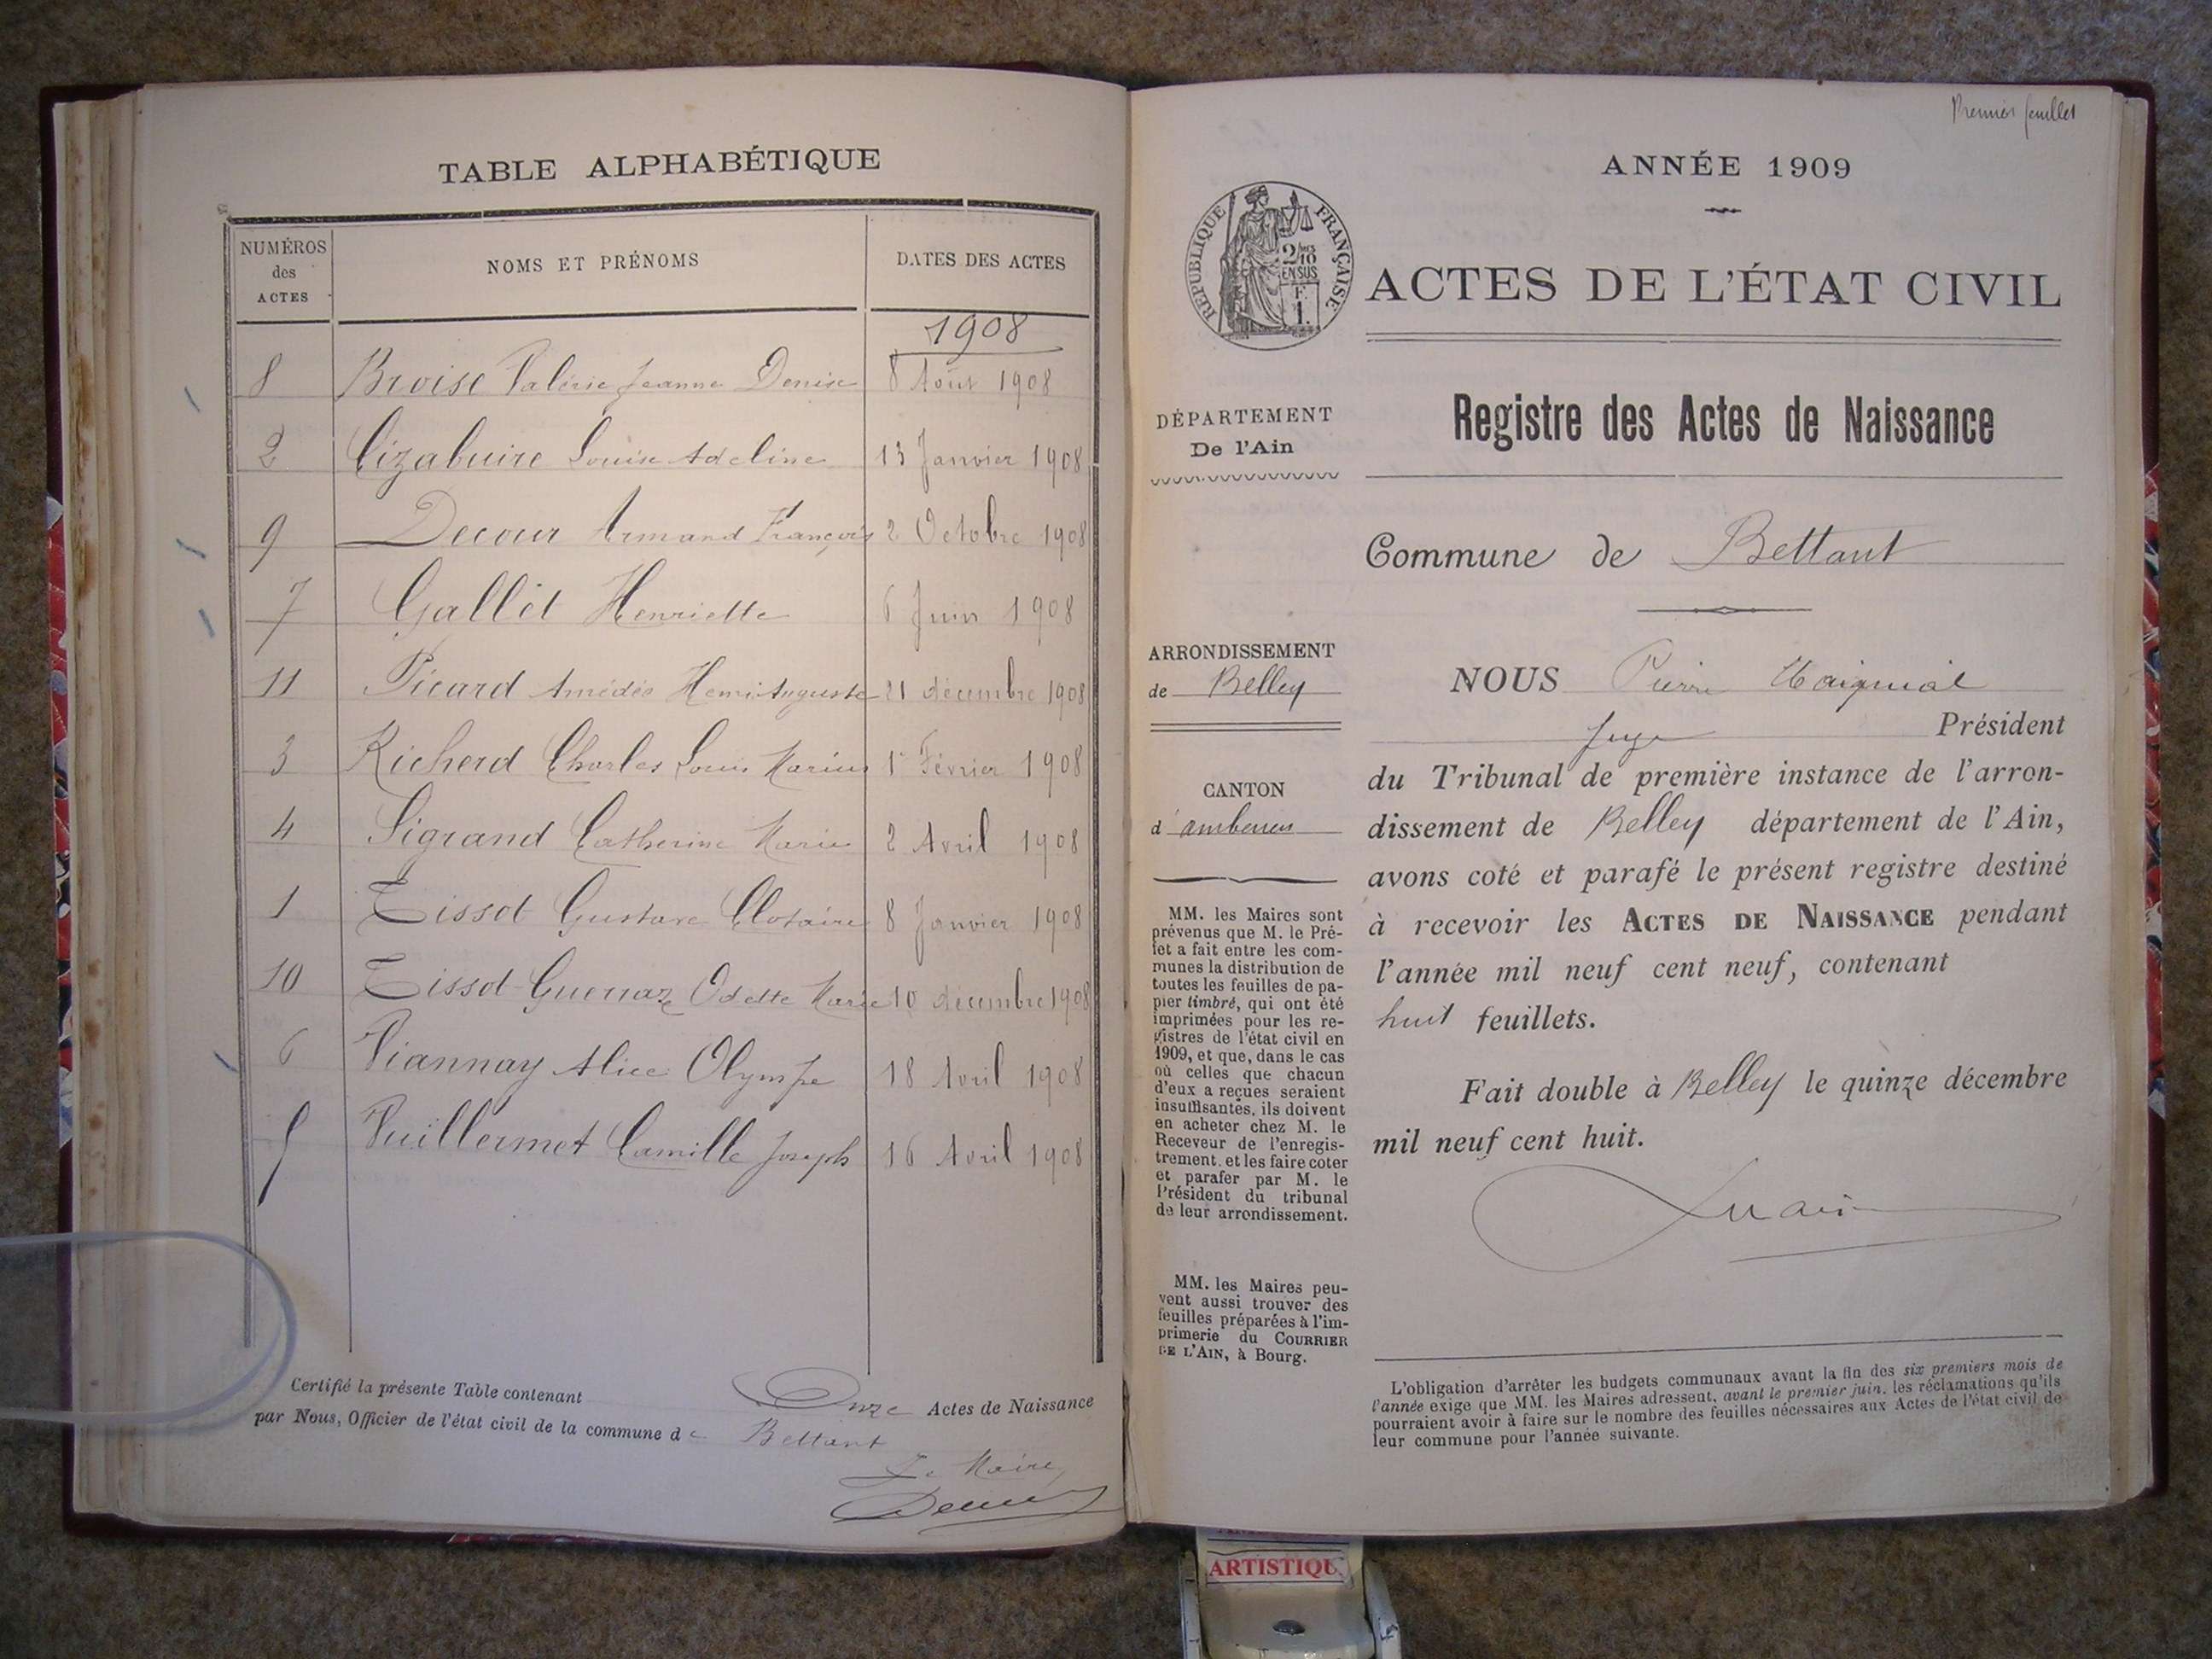 TABLE ALPHABÉTIQUE
NUMÉROS des ACTES NOMS ET PRÉNOMS DATES DES ACTES
1908
8 Broise Valérie Jeanne Denise 8 Août 1908
2 Cizabuire Louise Adeline 13 Janvier 1908
9 Decour Armand François 2 Octobre 1908
7 Gallet Henriette 6 Juin 1908
11 Picard Amédée Henri Auguste 21 décembre 1908
3 Richerd Charles Louis Marius 1er Février 1908
4 Sigrand Catherine Marie 2 Avril 1908
1 Tissot Gustave Clotaire 8 Janvier 1908
10 Tissot Guerraz Odette Marie 10 décembre 1908
6 Viannay Alice Olympe 18 Avril 1908
5 Vuillermet Camille Joseph 16 Avril 1908
Certifié la présente Table contenant Onze Actes de Naissance
par Nous, Officier de l'état civil de la commune de Bettant
Le Maire,
Premier feuillet
ANNÉE 1909
RÉPUBLIQUE FRANÇAISE
2/10
EN SUS
F.
1.
ACTES DE L'ÉTAT CIVIL
DÉPARTEMENT
De l'Ain
Registre des Actes de Naissance
Commune de Bettant
ARRONDISSEMENT
de Belley
CANTON
d'ambérieu
MM. les Maires sont
prévenus que M. le Pré-
fet a fait entre les com-
munes la distribution de
toutes les feuilles de pa-
pier timbré, qui ont été
imprimées pour les re-
gistres de l'état civil en
1909, et que, dans le cas
où celles que chacun
d'eux a reçues seraient
insuffisantes, ils doivent
en acheter chez M. le
Receveur de l'enregis-
trement, et les faire coter
et parafer par M. le
Président du tribunal
de leur arrondissement.
MM. les Maires peu-
vent aussi trouver des
feuilles préparées à l'im-
primerie du COURRIER
DE L'AIN, à Bourg.
NOUS Pierre
Juge Président
du Tribunal de première instance de l'arron-
dissement de Belley département de l'Ain,
avons coté et parafé le présent registre destiné
à recevoir les ACTES DE NAISSANCE pendant
l'année mil neuf cent neuf, contenant
huit feuillets.
Fait double à Belley le quinze décembre
mil neuf cent huit.
L'obligation d'arrêter les budgets communaux avant la fin des six premiers mois de
l'année exige que MM. les Maires adressent, avant le premier juin, les réclamations qu'ils
pourraient avoir à faire sur le nombre des feuilles nécessaires aux Actes de l'état civil de
leur commune pour l'année suivante.
ARTISTIQU